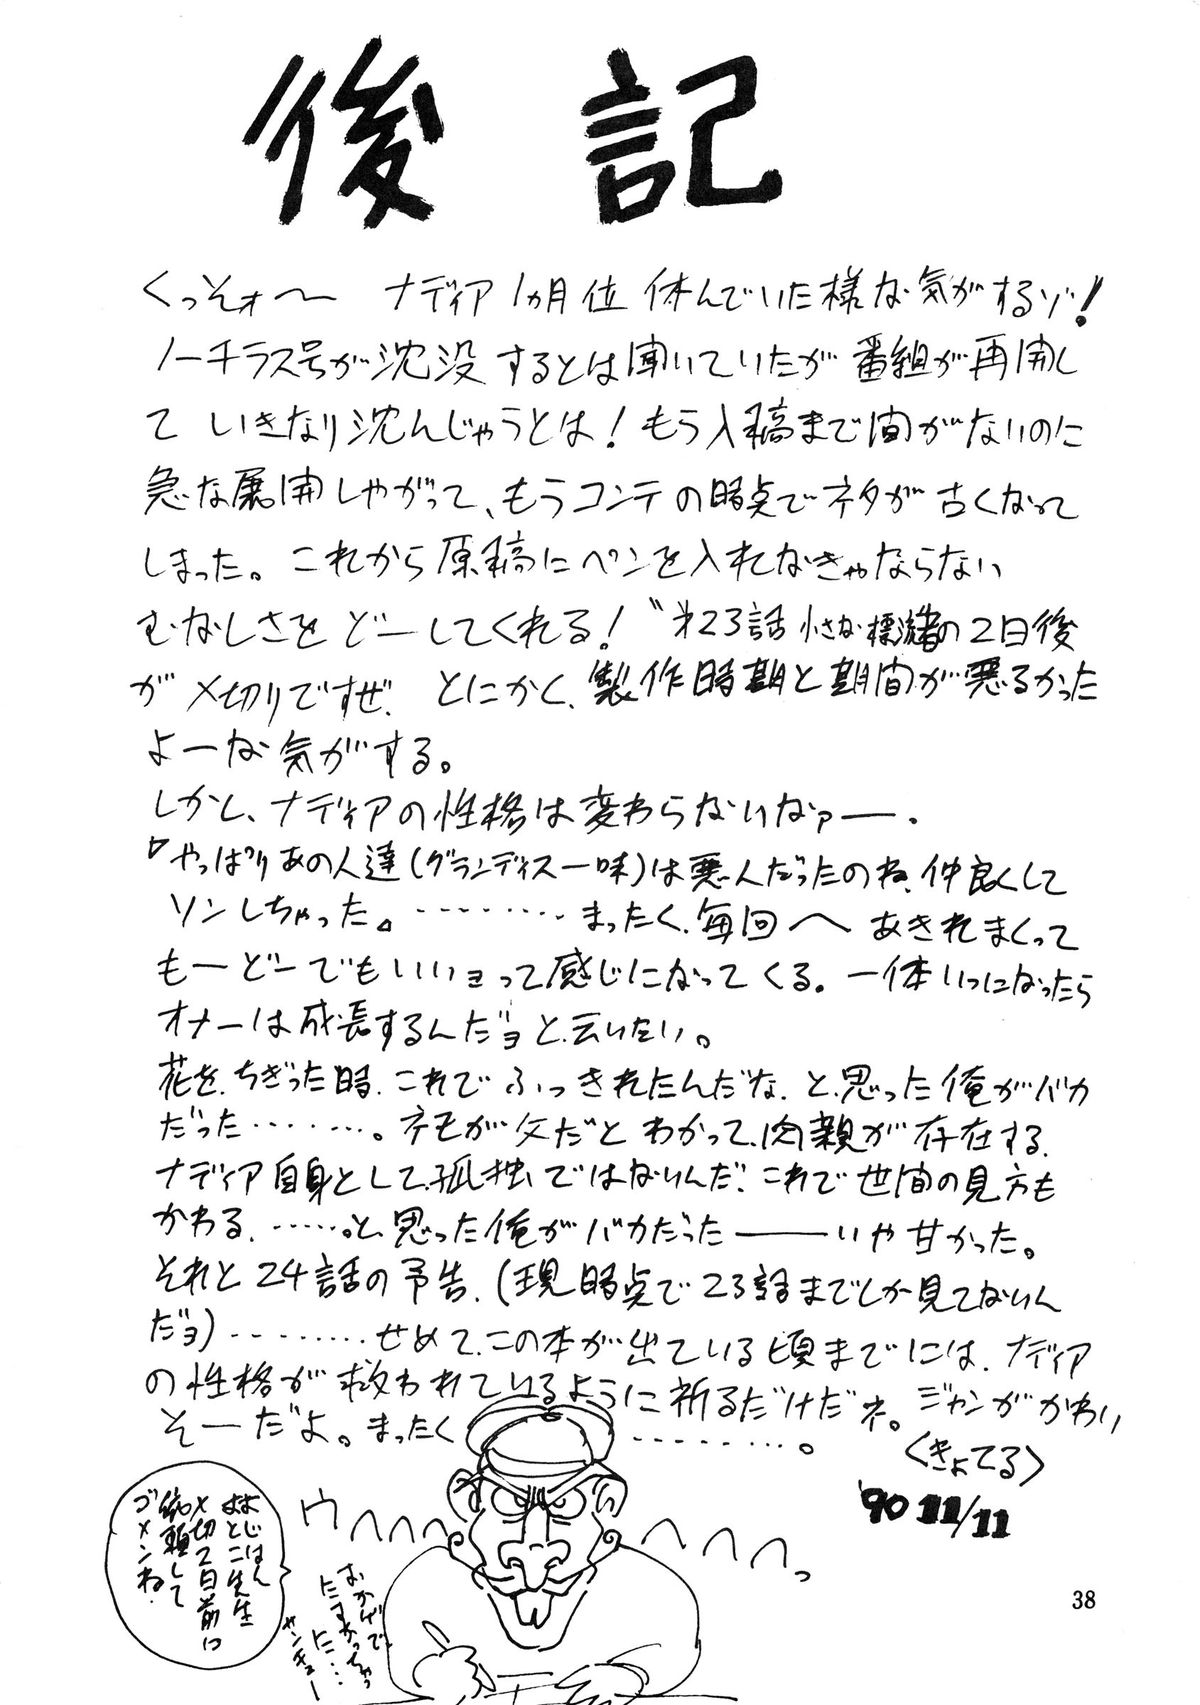 後記
くっそォ〜 ナディア1ヵ月位休んでいた様な気がするゾ!
ノーチラス号が沈没するとは聞いていたが番組が再開し
ていきなり沈んじゃうとは!もう入稿まで間がないのに
急な展開しやがって、もうコンテの時点でネタが古くなって
しまった。これから原稿にペンを入れなきゃならない
むなしさをどーしてくれる!〝第23話 小さな漂流者の2日後
が〆切りですぜ。とにかく、製作時期と期間が悪るかった
よーな気がする。
しかし、ナディアの性格は変わらないなァー.
「やっぱりあの人達(グランディス一味)は悪人だったのね、仲良くして
ソンしちゃった。」………まったく、毎回〜あきれまくって
もーどーでもいいョって感じになってくる。一体いつになったら
オナーは成長するんだョと、云いたい。
花を、ちぎった時、これでふっきれたんだな、と、思った俺がバカ
だった………。ネモが父だとわかって、肉親が存在する、
ナディア自身として、孤独ではないんだ、これで世間の見方も
かわる、……。と、思った俺がバカだった――いや甘かった。
それと24話の予告、(現時点で23話までしか見てないん
だョ)………せめて、この本が出ている頃までには、ナディア
の性格が救われているように祈るだけだネ。ジャンがかわい
そーだよ。まったく………。
<きよてる>
'90 11/11
ウヘヘヘヘ
ヘヘヘヘっ
おかげで、
たすかっちゃっ
た…
サンキュー
よとこ先生
〆切2日前に
依頼して
ゴメンね.
38